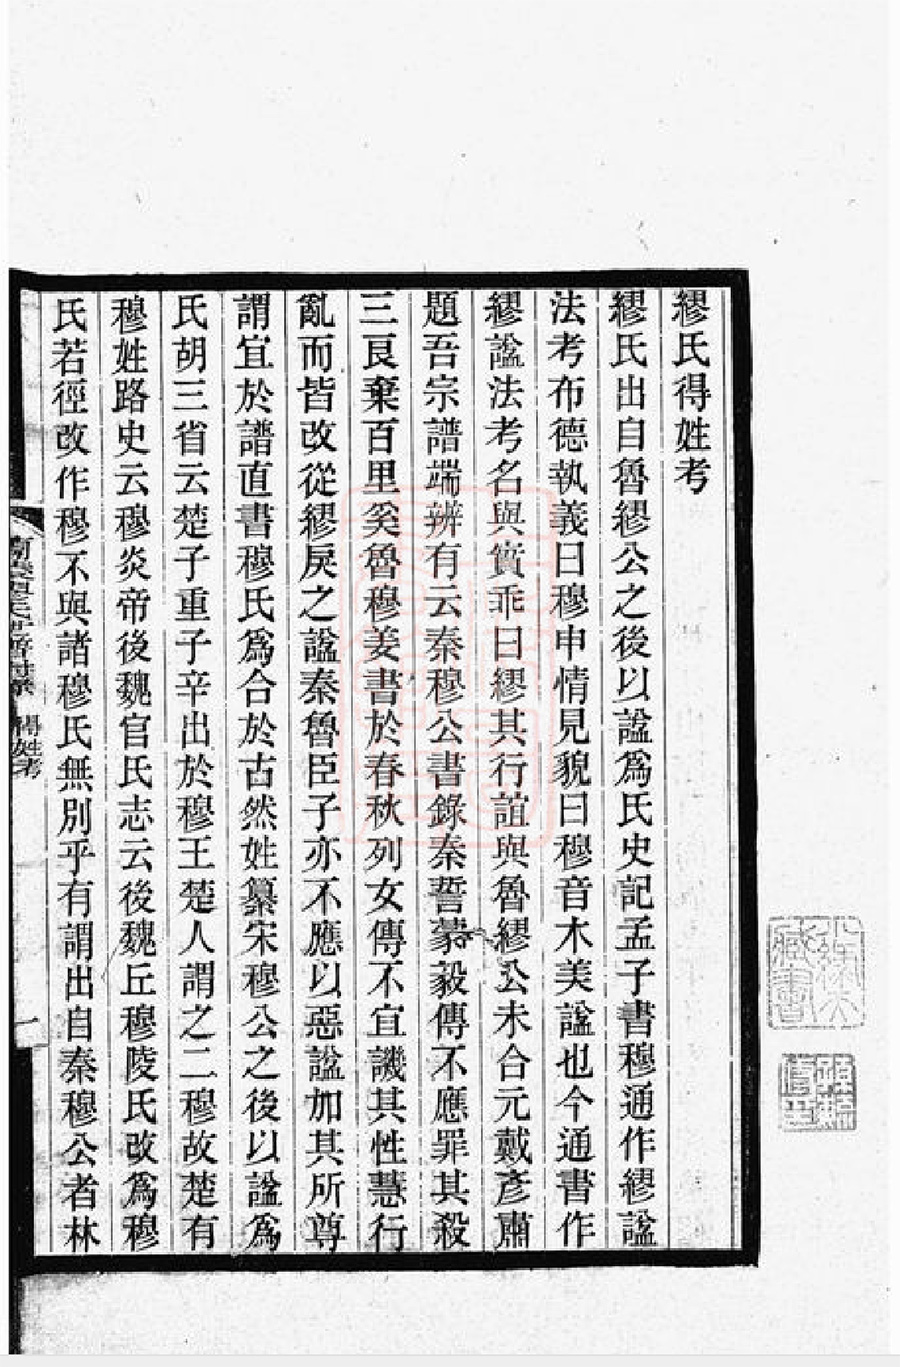 繆氏得姓考
繆氏出自魯繆公之後以諡爲氏史記孟子書穆通作繆諡
法考布德執義曰穆申情見貌曰穆音木美諡也今通書作
繆諡法考名與實乖曰繆其行誼與魯繆公未合元戴彥肅
題吾宗譜端辨有云秦穆公書錄秦誓蒙毅傳不應罪其殺
三良棄百里奚魯穆姜書於春秋列女傳不宜譏其性慧行
亂而皆改從繆戾之諡秦魯臣子亦不應以惡諡加其所尊
謂宜於譜直書穆氏爲合於古然姓纂宋穆公之後以諡爲
氏胡三省云楚子重子辛出於穆王楚人謂之二穆故楚有
穆姓路史云穆炎帝後魏官氏志云後魏丘穆陵氏改爲穆
氏若徑改作穆不與諸穆氏無別乎有謂出自秦穆公者林
得姓考
一
藏書